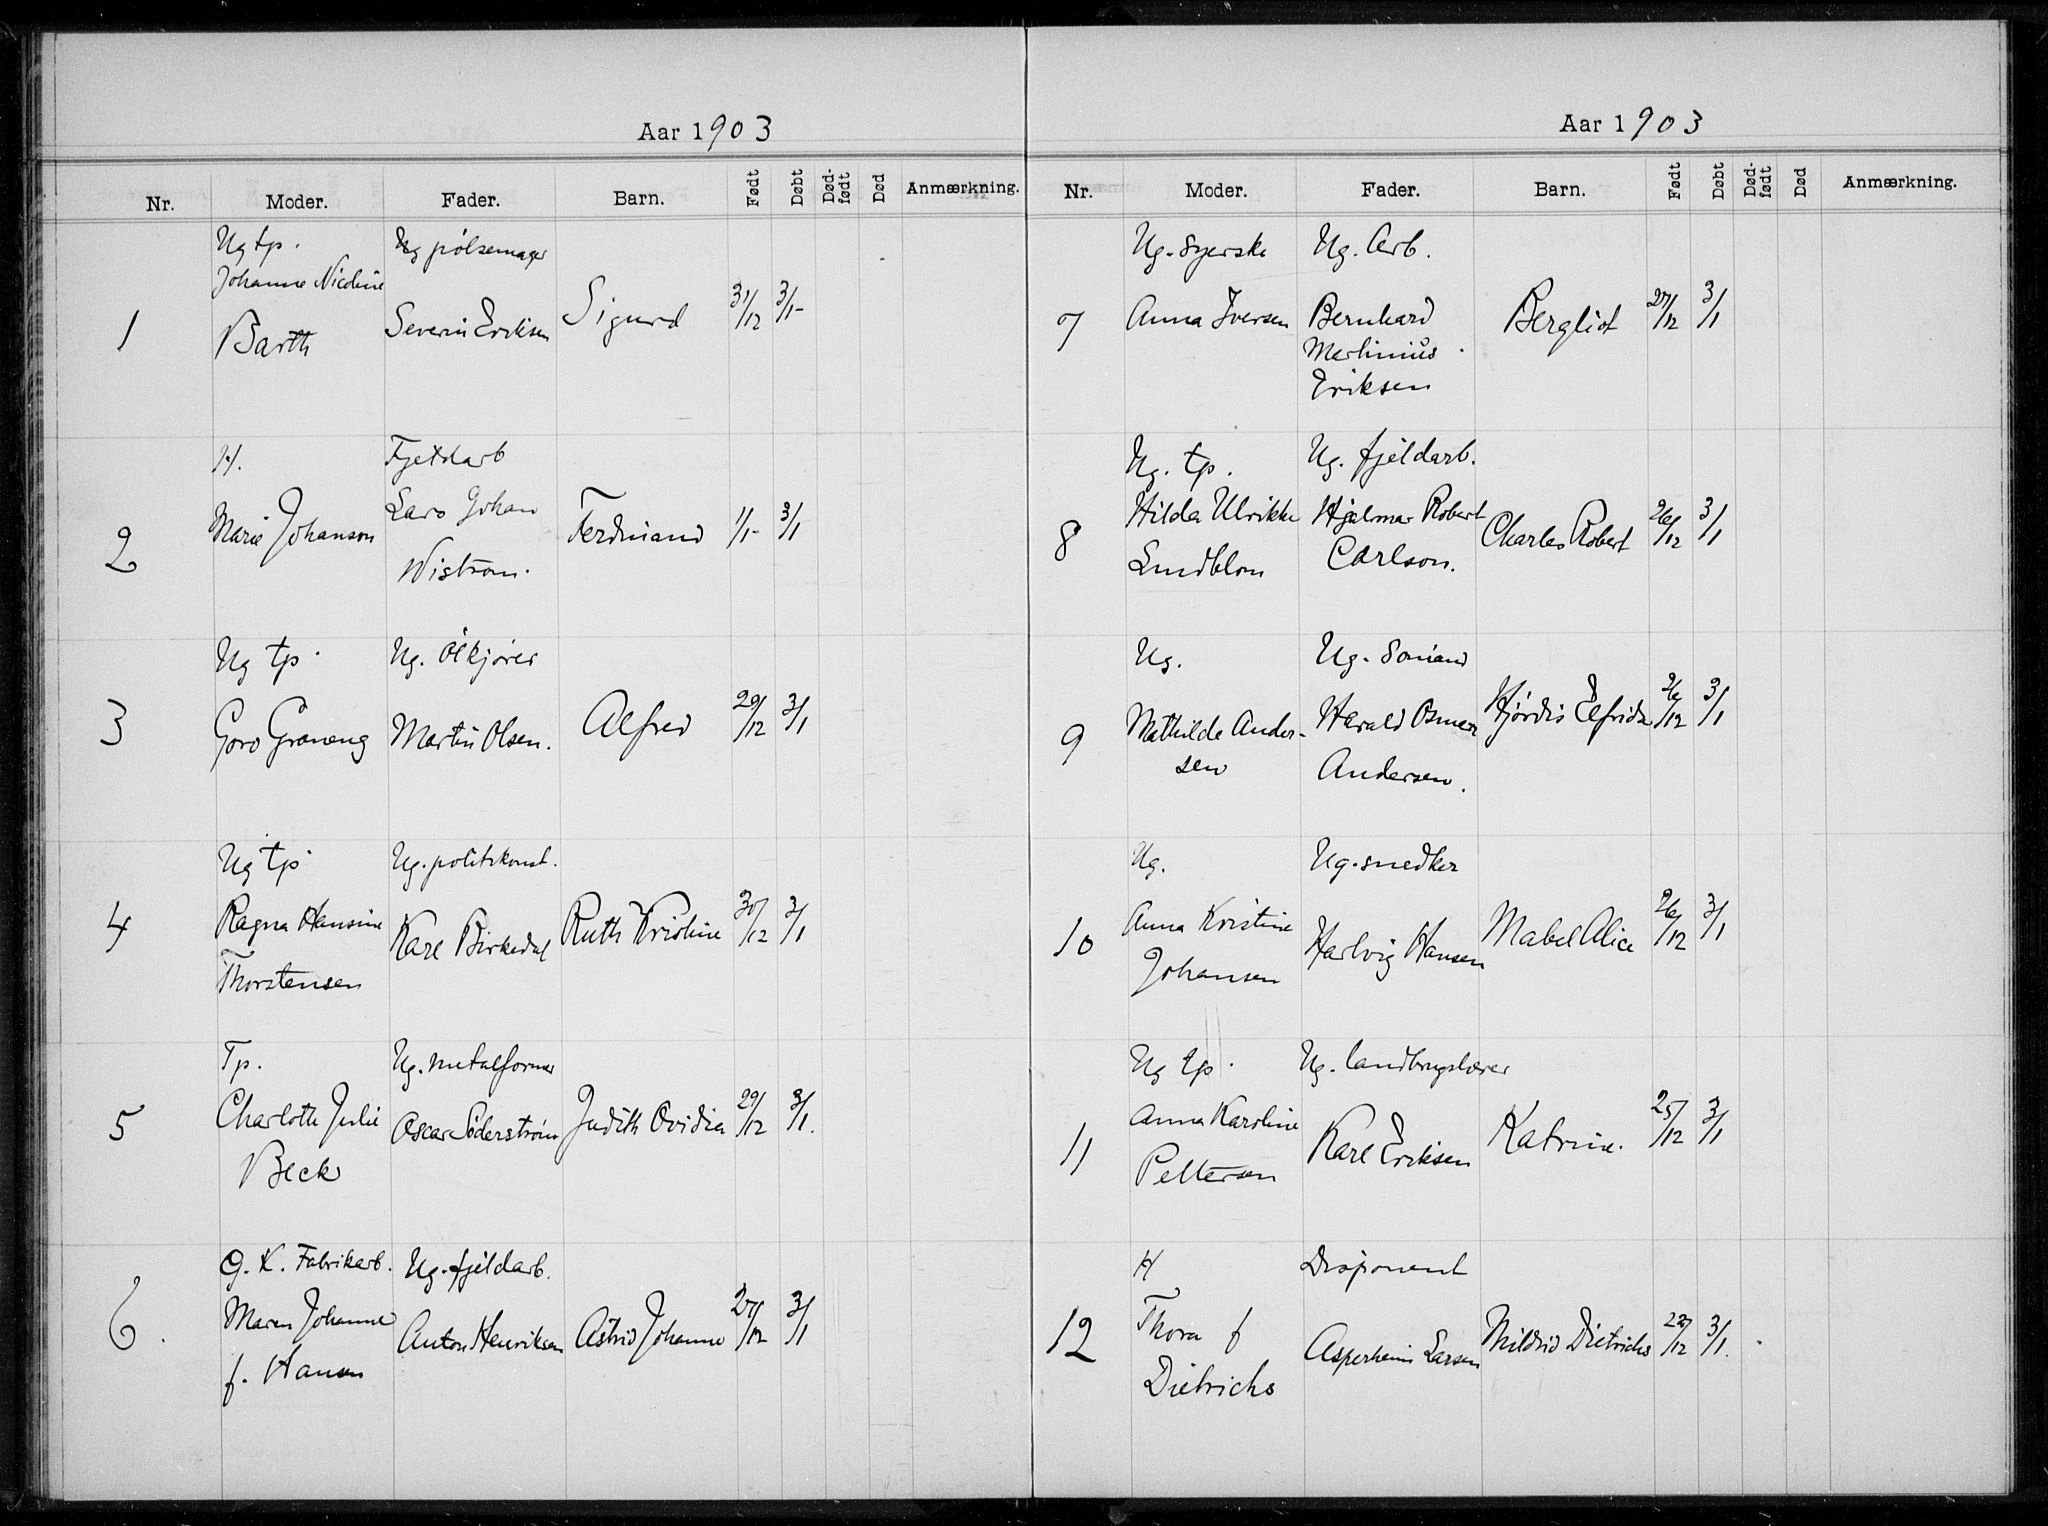 Aar 1903
Nr. Moder. Fader. Barn. Født Døbt Død-født Død Anmærkning.
Ug tp. Ug pølsemager
Johanne Nicoline
1 Barth Severin Eriksen Sigurd 31/12 3/1-
H. Fjeldarb
2 Marie Johanson Lars Johan Ferdinand 1/1- 3/1
Wistrøm.
Ug tp. Ug. Ølkjører
3 Goro Graneng Martin Olsen. Alfred 29/12 3/1
Ug tp. Ug. politikonst.
4 Ragna Hansine Karl Birkedal Ruth Kristine 30/12 3/1
Thorstensen
Tp. Ug. metalformer
5 Charlotte Julie Oscar Søderstrøm Judith Ovidia 29/12 3/1.
Beck
G. K. Fabrikarb. Ug. fjeldarb.
6. Maren Johanne Anton Henriksen Astrid Johanne 27/12 3/1
f. Hansen
Aar 1903
Nr. Moder. Fader. Barn. Født Døbt Død-født Død Anmærkning.
Ug. Syerske Ug. Arb.
7 Anna Iversen Bernhard Bergliot 27/12 3/1
Martinius
Eriksen
Ug. tp. Ug. fjeldarb.
8 Hilda Ulrikke Hjalmar Robert Charles Robert 26/12 3/1
Lindblom Carlson.
Ug. Ug. Sømand
9 Mathilde Ander- Harald Hjørdis Elfrida 26/12 3/1
sen Andersen.
Ug. Ug. snedker
10 Anna Kristine Hartvig Hansen Mabel Alice 26/12 3/1
Johansen
Ug tp. Ug. landbrugslærer
11 Anna Karoline Karl Eriksen Katrine. 25/12 3/1
Pettersen
H Disponent
12 Thora f Asperheim Larsen Mildrid Dietrichs 22/12 3/1.
Dietrichs